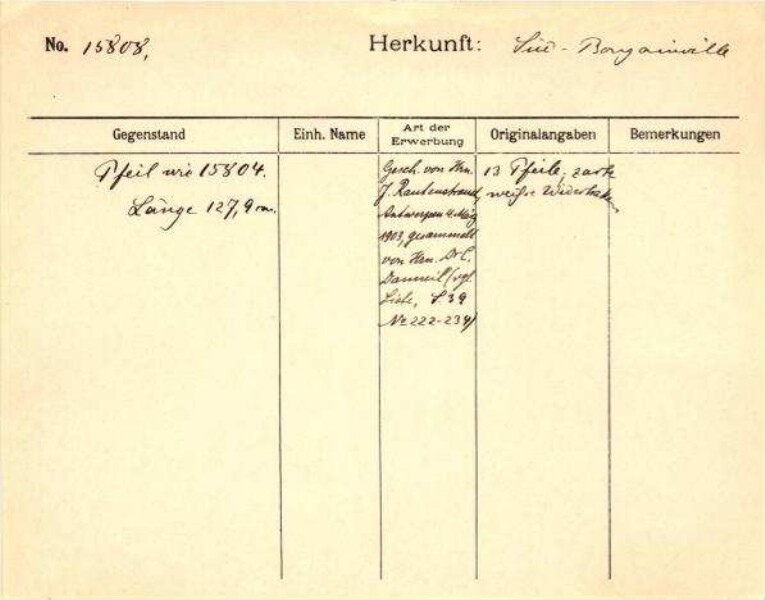 No. 15808,
Herkunft: Süd-Bougainville
Gegenstand
Einh. Name
Art der Erwerbung
Originalangaben
Bemerkungen
Pfeil wie 15804.
Länge 127,9 cm.
Gesch. von Hrn.
J. Rautenstrauch,
Antwerpen 4. März
1903, gesammelt
von Hrn. Dr C.
Danneil (vgl.
Liste, S 39
No 222-234)
13 Pfeile; zarte
weiße Widerhaken